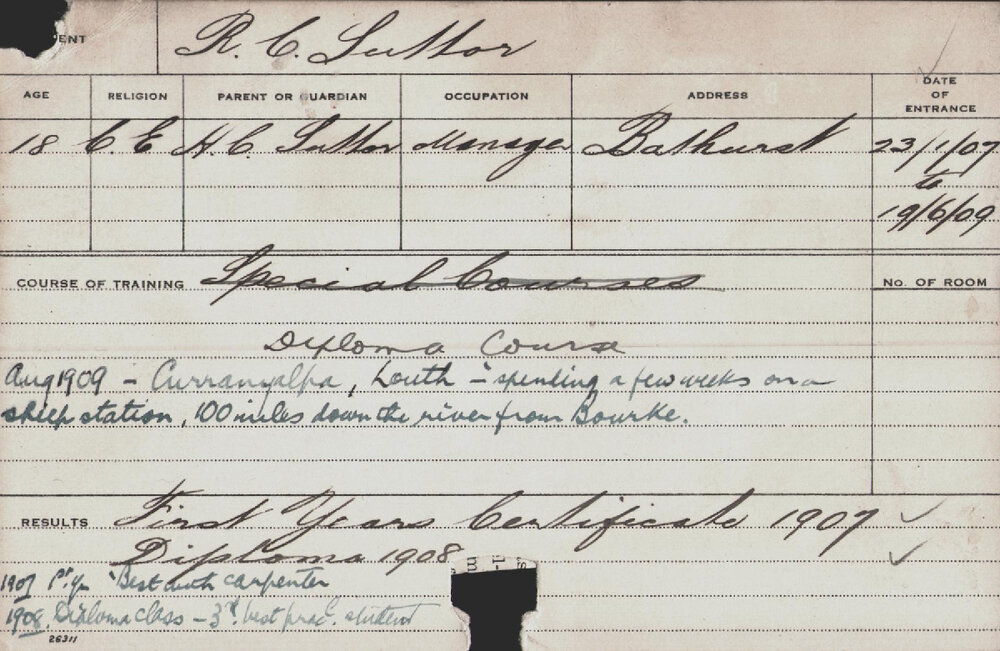 ENT R. C. Suttor
AGE RELIGION PARENT OR GUARDIAN OCCUPATION ADDRESS DATE OF ENTRANCE
18 C. E H. C. Suttor Manager Bathurst 23/1/07
to
19/6/09
COURSE OF TRAINING Special Courses No. OF ROOM
Diploma Course
Aug 1909 - Curranyalpa, Louth - "spending a few weeks on a
sheep station, 100 miles down the river from Bourke.
RESULTS First Years Certificate 1907
Diploma 1908
1907 1st yr "Best with carpenter
1908. Diploma class - 3rd. best prac. student
26311